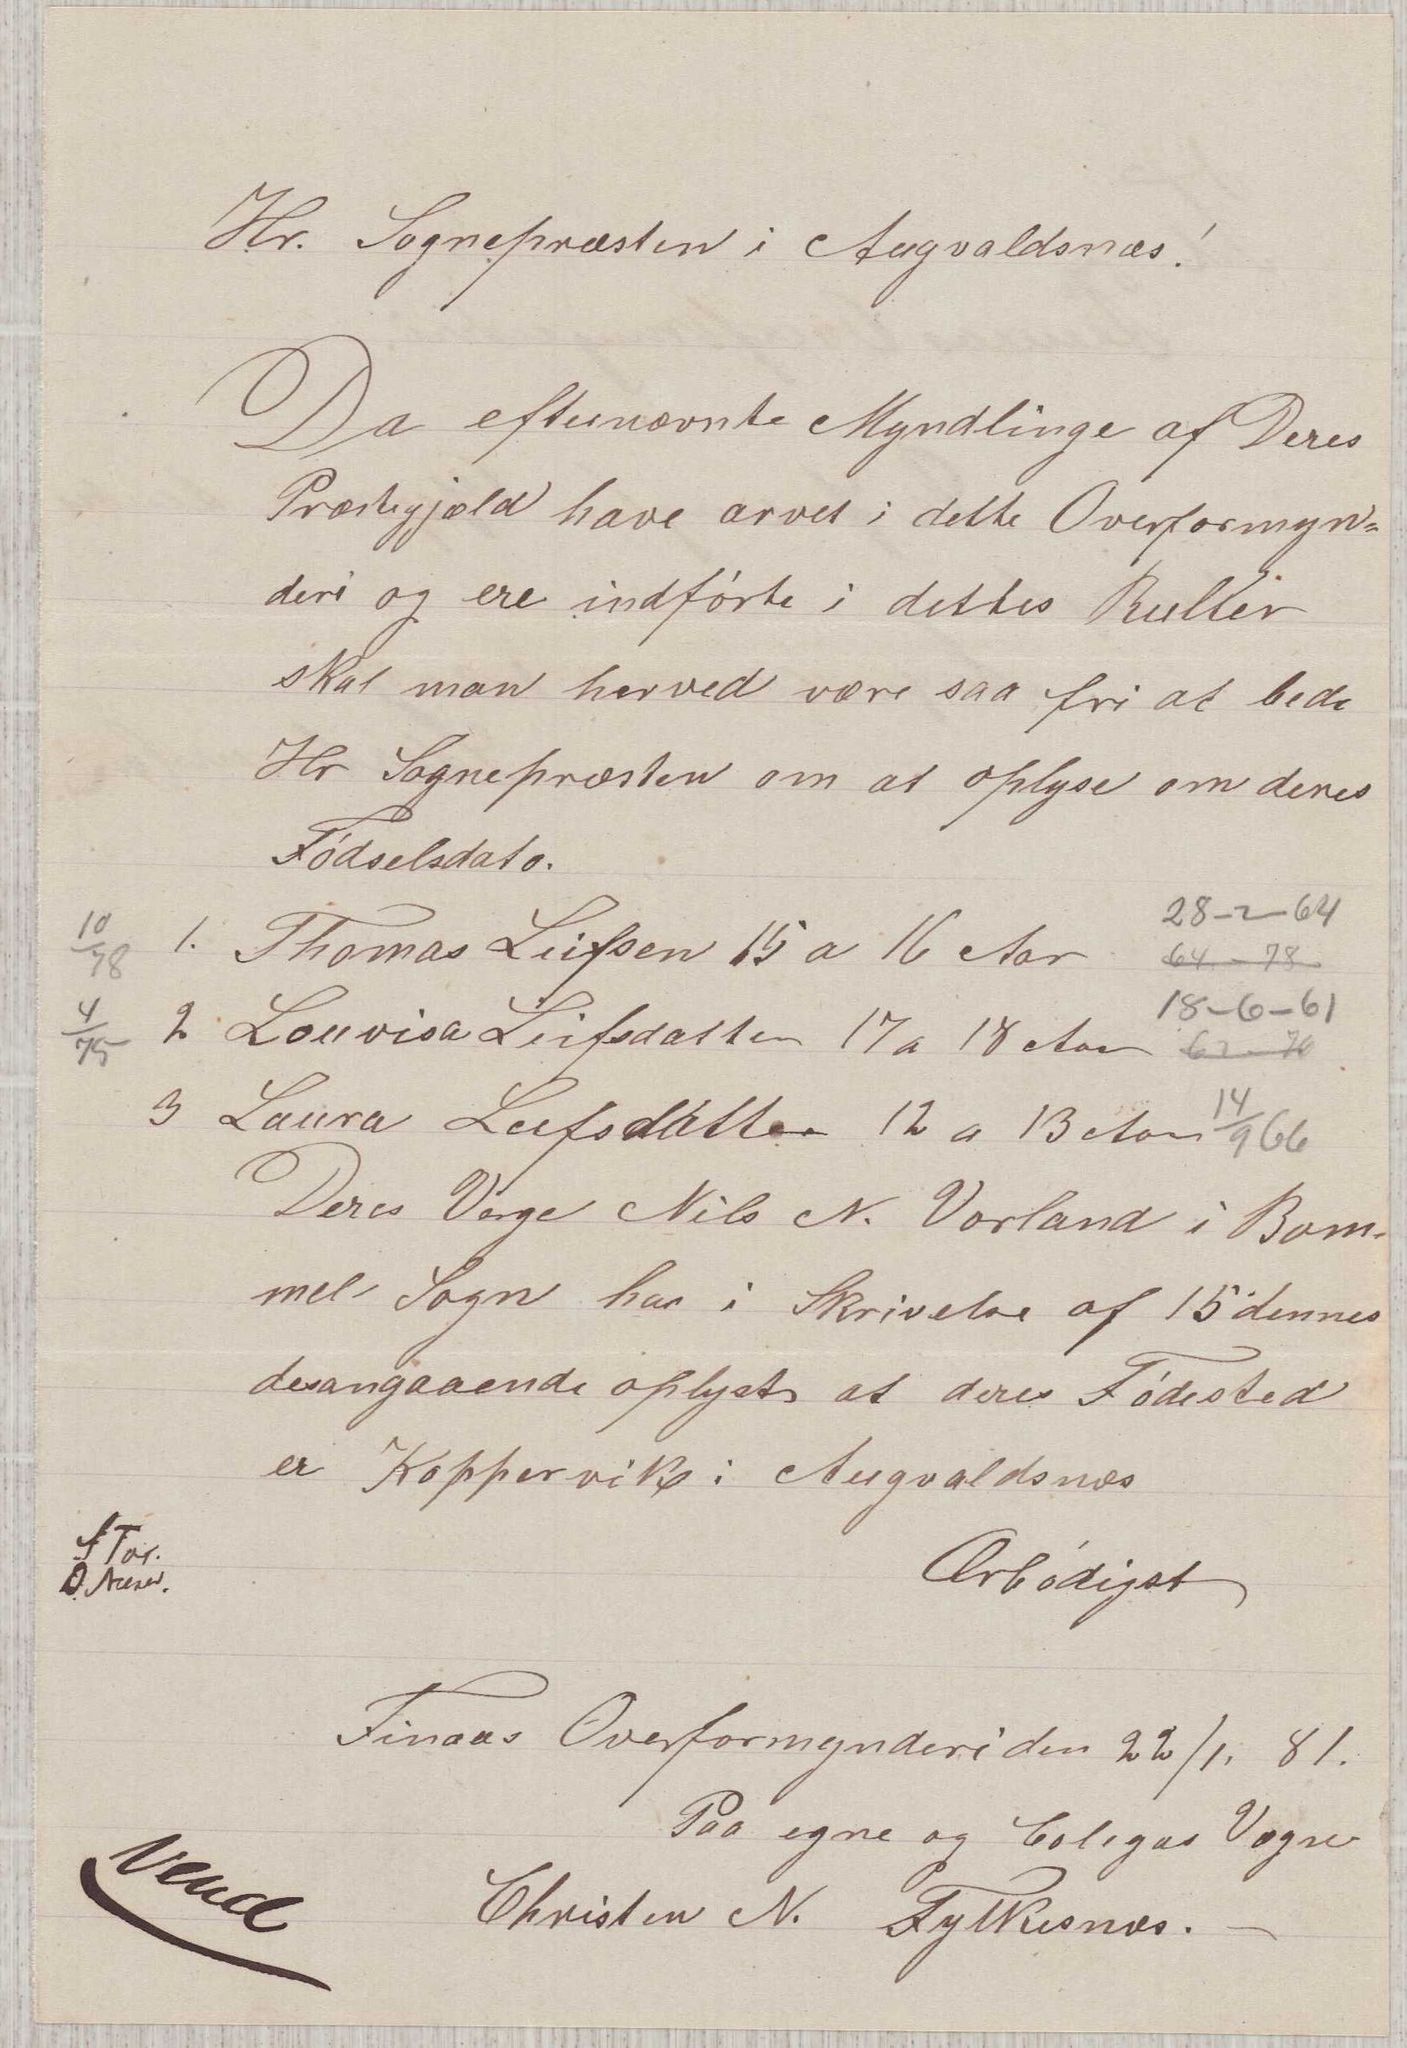 Hr. Sognepræsten i Augvaldsnæs!
Da efternævnte Myndlinge af Deres
Præstegjæld have arvet i dette Overformyn=
deri og ere indførte i dettes Ruller
skal man herved være saa fri at bede
Hr Sognepræsten om at oplyse om deres
Fødselsdato.
10/78 1. Thomas Leifsen 15 a 16 Aar 28-2-64
64-78
4/75 2 Louvisa Leifsdatter 17 a 18 Aar 18-6-61
3 Laura Leifsdatter 12 a 13 Aar 14/9 66
Deres Værge Nils N. Vorland i Bom-
mel Sogn har i Skrivelse af 15 dennes
desangaaende oplyst at deres Fødested
er Koppervik i Augvaldsnæs
Ærbødigst
Finaas Overformynderi den 22/1. 81.
Paa egne og Colegas Vegne
Christen N. Fylkesnæs. -
Vend